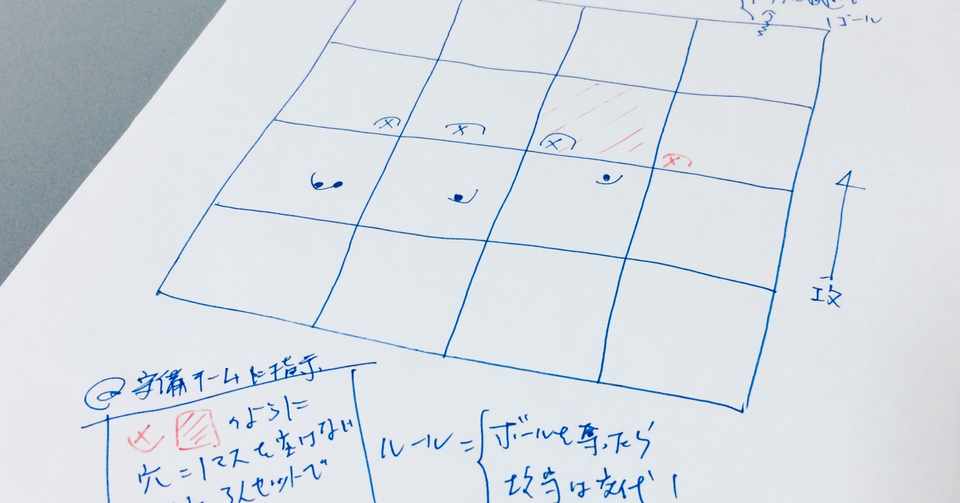 ゴール
攻
守備チームに指示
のように
穴=1マスを空けない
3人セットで
ルール=
ボールを奪ったら
攻守は交代!